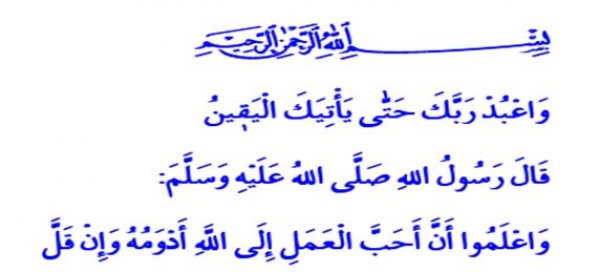 بِسْمِ اللهِ الرَّحْمٰنِ الرَّحِيمِ
وَاعْبُدْ رَبَّكَ حَتّٰى يَأْتِيَكَ الْيَق۪ينُ
قَالَ رَسُولُ اللهِ صَلَّى اللهُ عَلَيْهِ وَسَلَّمَ:
وَاعْلَمُوا أَنَّ أَحَبَّ الْعَمَلِ إِلَى اللَّهِ أَدْوَمُهُ وَإِنْ قَلَّ